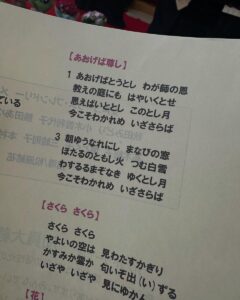 【あおげば尊し】
1 あおげばとうとし わが師の恩
教えの庭にも はやいくとせ
思えばいととし このとし月
今こそわかれめ いざさらば
3 朝ゆうなれにし まなびの窓
ほたるのともし火 つむ白雪
わするるまぞなき ゆくとし月
今こそわかれめ いざさらば
ている
【さくら さくら】
さくら さくら
やよいの空は 見わたすかぎり
かすみか雲か 匂いぞ出(い)ずる
いざや いざや 見にゆかん
【花】